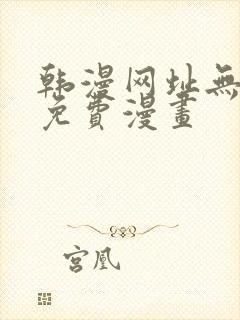 韩漫网址無
免費漫畫
宮凰